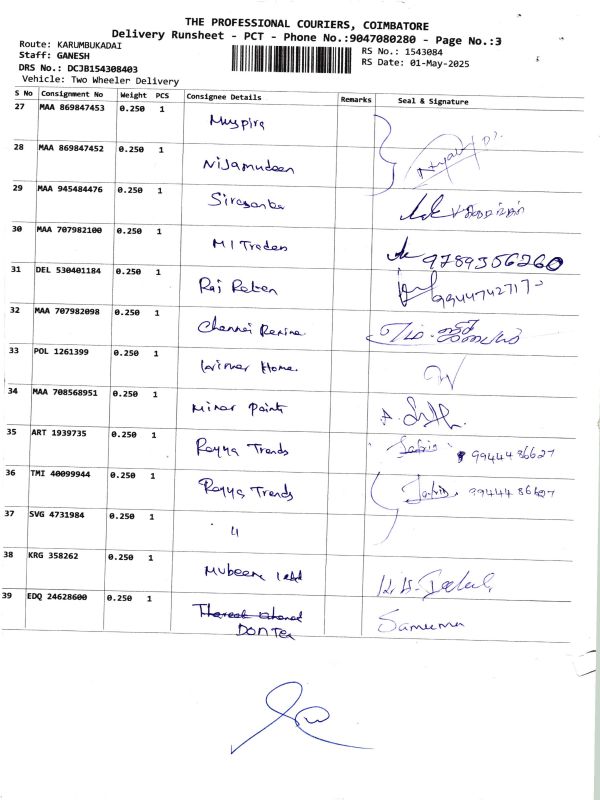 THE PROFESSIONAL COURIERS, COIMBATORE
Delivery Runsheet - PCT - Phone No.:9047080280 - Page No.:3
Route: KARUMBUKADAI
Staff: GANESH
DRS No.: DCJB154308403
Vehicle: Two Wheeler Delivery
RS No.: 1543084
RS Date: 01-May-2025
S No Consignment No Weight PCS Consignee Details Remarks Seal & Signature
27 MAA 869847453 0.250 1
28 MAA 869847452 0.250 1 Nijamudeen
29 MAA 945484476 0.250 1
30 MAA 707982100 0.250 1 MI Traders 9789356260
31 DEL 530401184 0.250 1 9944742717
32 MAA 707982098 0.250 1 Chennai
33 POL 1261399 0.250 1 Home
34 MAA 708568951 0.250 1 Minar Paints
35 ART 1939735 0.250 1 Rayya Trends 9944486627
36 TMI 40099944 0.250 1 Rayya Trends 9944486627
37 SVG 4731984 0.250 1 "
38 KRG 358262 0.250 1 Mubeena
39 EDQ 24628600 0.250 1